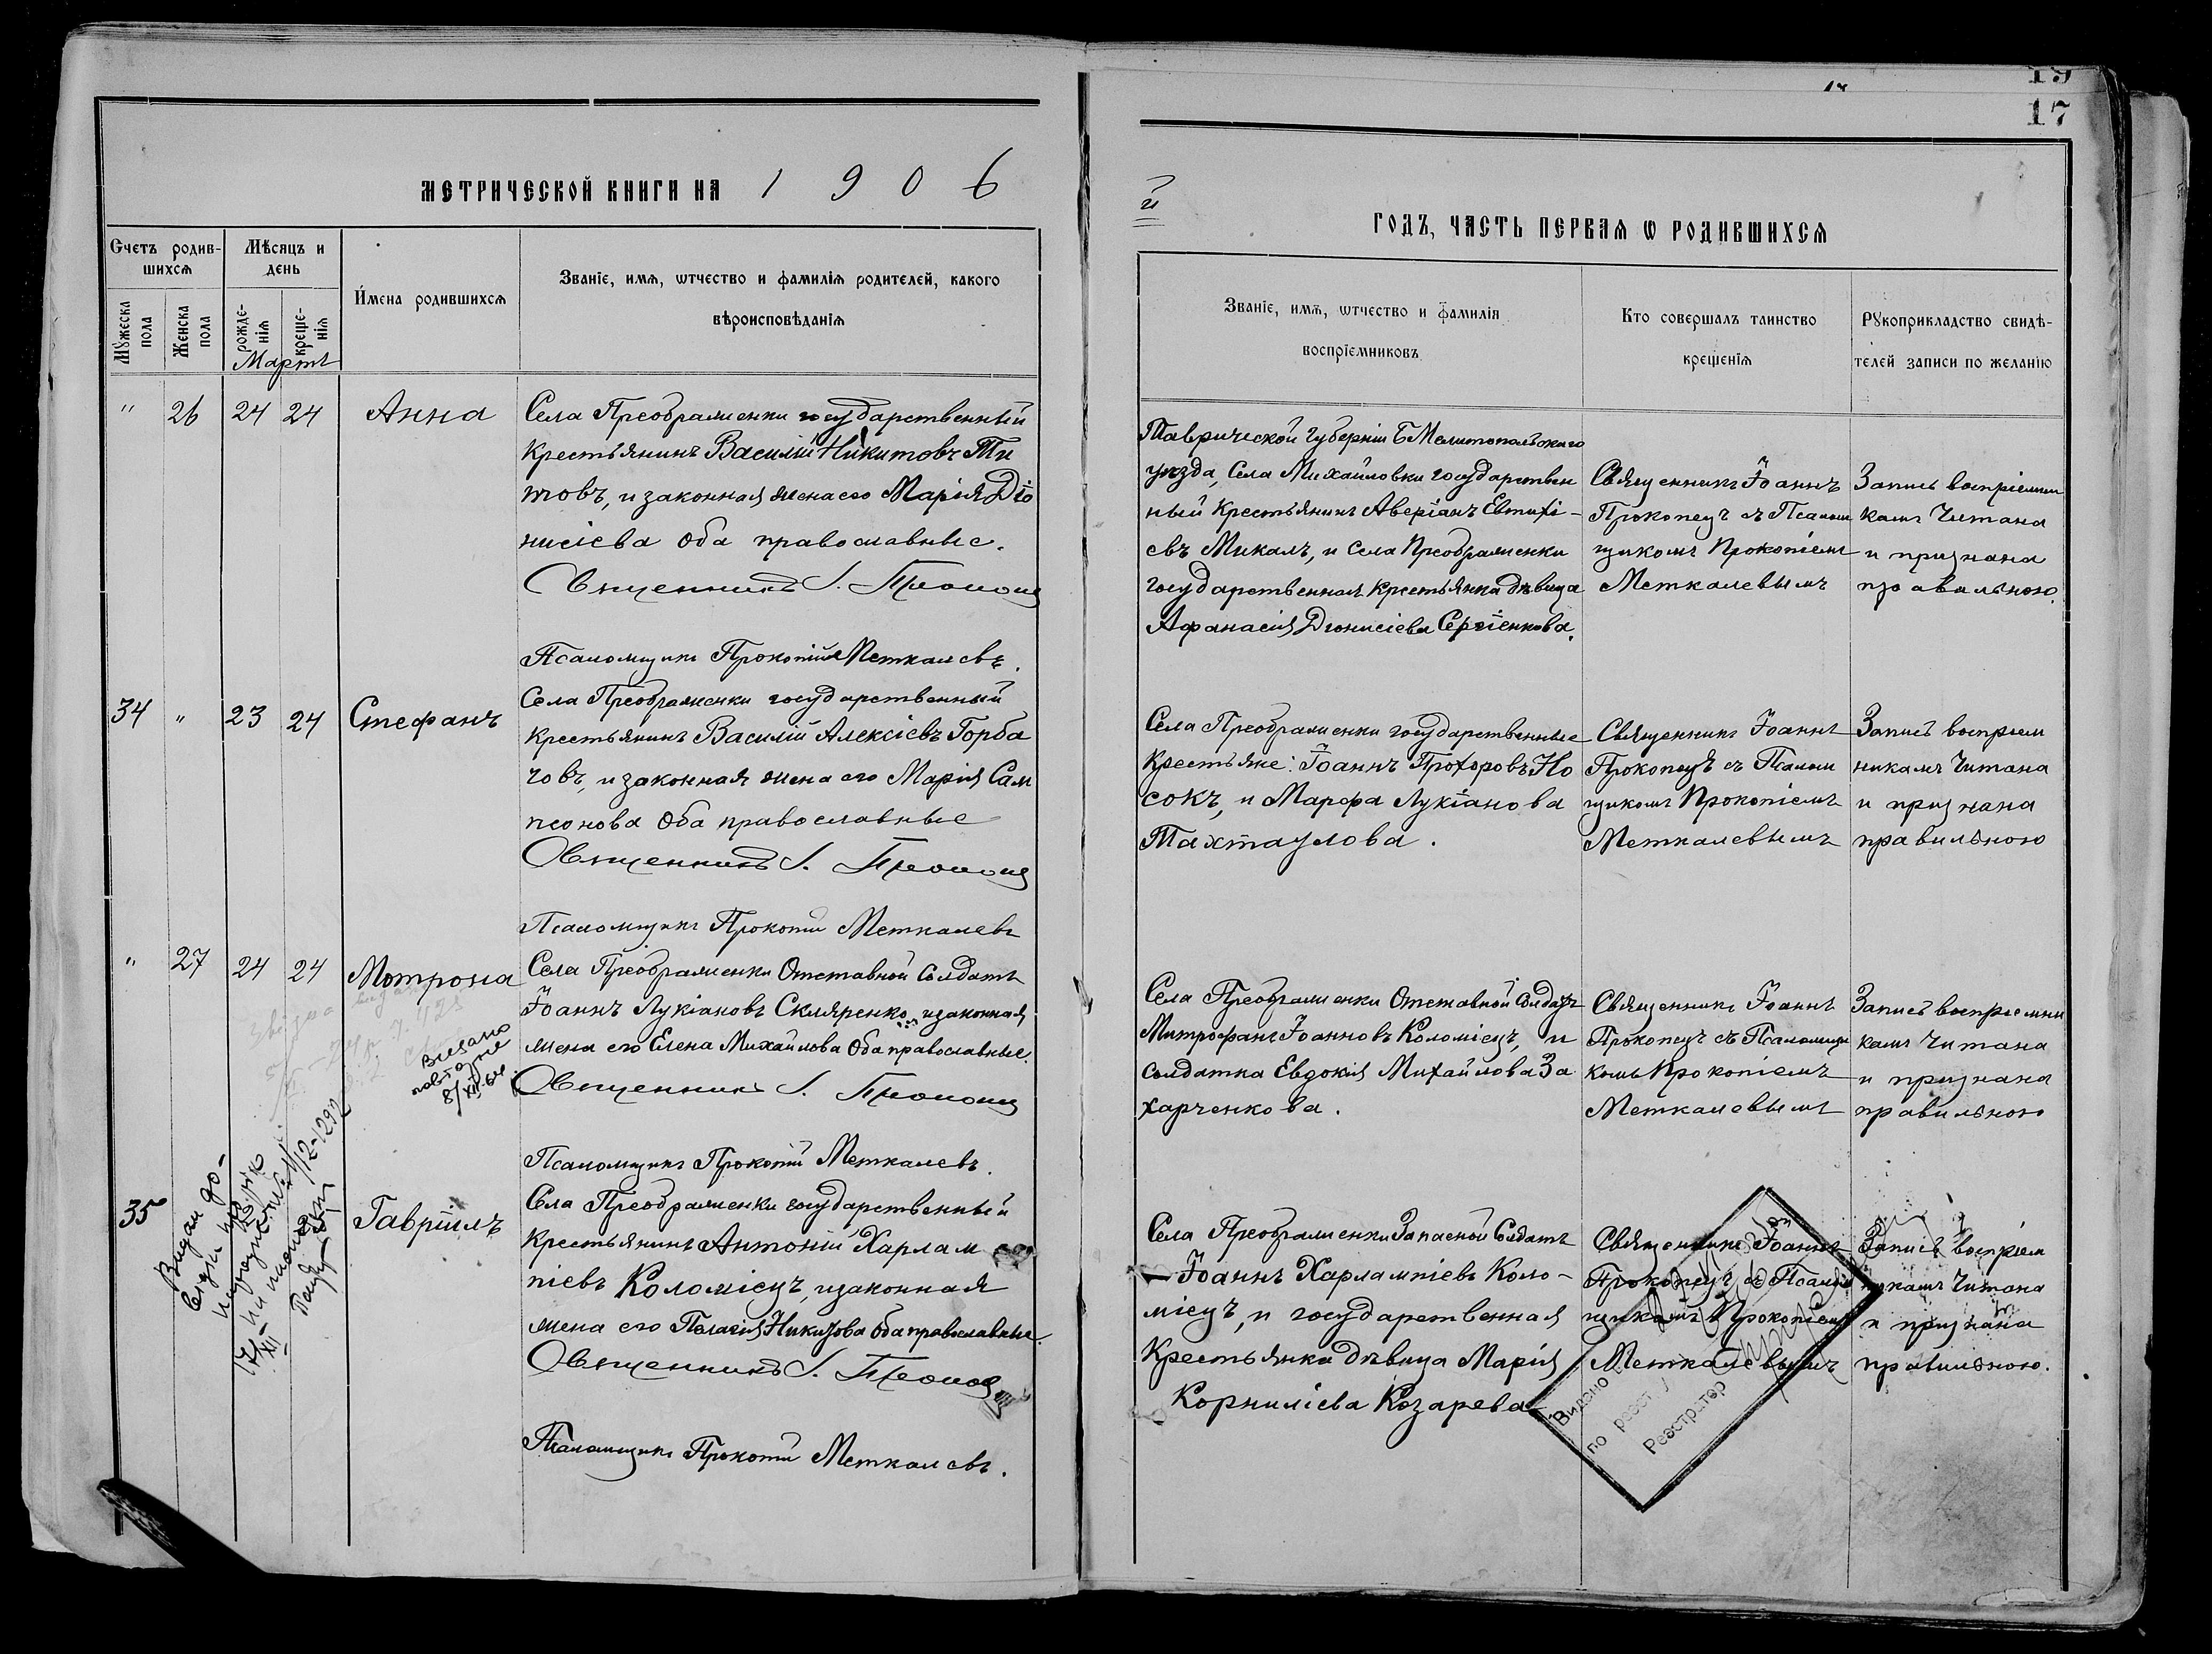 19
17
МЕТРИЧЕСКОЙ КНИГИ НА 1906
й
ГОДЪ, ЧАСТЬ ПЕРВАЯ Ѡ РОДИВШИХСЯ
Счетъ родив-
шихся
Мѣсяцъ и
день
Имена родившихся
Званіе, имя, ѡтчество и фамилія родителей, какого
вѣроисповѣданія
Мужеска пола
Женска пола
рожде-
нія
креще-
нія
Мартъ
Званіе, имя, ѡтчество и фамилія
воспріемниковъ
Кто совершалъ таинство
крещенія
Рукоприкладство свидѣ-
телей записи по желанію
" 26 24 24 Анна
Села Преображенки государственный
Крестьянинъ Василій Никитовъ Ти
товъ, и законная жена его Марія Діо
нисіева оба православные.
Священникъ І. Прокопец
Псаломщикъ Прокопій Меткалевъ.
Таврической губерніи Б Мелитопольскаго
уѣзда, Села Михайловки государствен
ный Крестьянинъ Аверіанъ Евтихі-
евъ Микалъ, и Села Преображенки
государственная Крестьянка дѣвица
Афанасія Діонисіева Сергіенкова.
Священникъ Іоаннъ
Прокопецъ съ Псалом
щикомъ Прокопіемъ
Меткалевымъ
Запись воспріемни
камъ читана
и признана
правильною.
34 " 23 24 Стефанъ
Села Преображенки государственный
Крестьянинъ Василій Алексіевъ Горба
човъ, и законная жена его Марія Сам
псонова оба православные
Священникъ І. Прокопец
Псаломщикъ Прокопій Меткалевъ
Села Преображенки государственные
Крестьяне: Іоаннъ Прохоровъ Но
сокъ, и Марфа Лукіанова
Тахтаулова.
Священникъ Іоаннъ
Прокопецъ съ Псалом
щикомъ Прокопіемъ
Меткалевымъ
Запись воспріем
никамъ читана
и признана
правильною
" 27 24 24 Мотрона
Села Преображенки Отставной Солдатъ
Іоаннъ Лукіановъ Скляренко, и законная
жена его Елена Михайлова оба православные.
Священникъ І. Прокопец
Псаломщикъ Прокопій Меткалевъ.
повторне
8/XII-64
Села Преображенки Отставной Солдатъ
Митрофанъ Іоанновъ Коломіецъ, и
солдатка Евдокія Михайлова За
харченкова.
Священникъ Іоаннъ
Прокопецъ съ Псаломщи
комъ Прокопіемъ
Меткалевымъ
Запись воспріемни
камъ читана
и признана
правильною
35 Гавріилъ
Села Преображенки государственный
Крестьянинъ Антоній Харлам
піевъ Коломіецъ, и законная
жена его Пелагія Никитова оба православные.
Священникъ І. Прокопец
Псаломщикъ Прокопій Меткалевъ.
Села Преображенки Запасной Солдатъ
Іоаннъ Харлампіевъ Коло-
міецъ, и государственная
Крестьянка дѣвица Марія
Корниліева Козарева
Священникъ Іоаннъ
Прокопецъ съ Псалом
щикомъ Прокопіемъ
Меткалевымъ
Запись воспріем
никамъ читана
и признана
правильною.
Видано
по реєст
Реєстратор